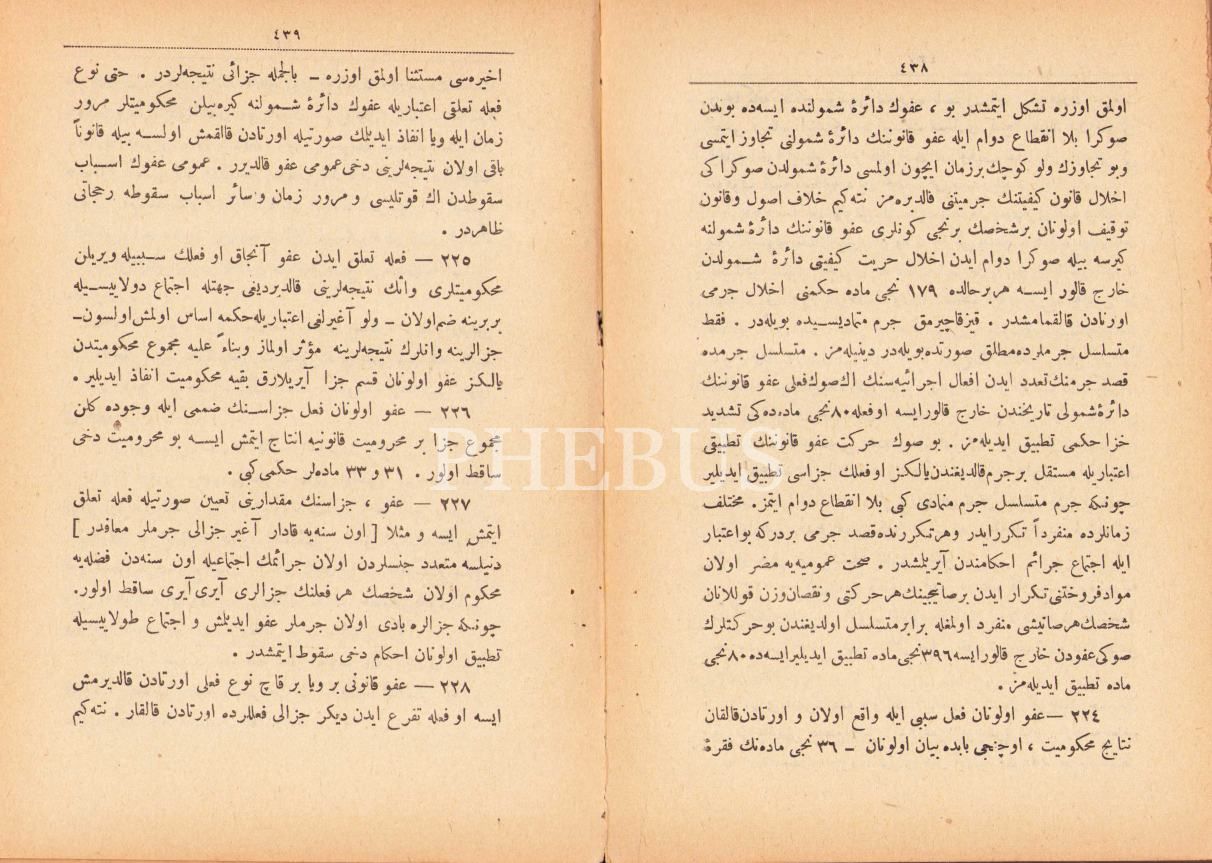 ٤٣٨
اولمق اوزره تشكل ايتمشدر بو ، عفوك دائرهٔ شمولنده ايسه‌ده بوندن
صوكرا بلا انقطاع دوام ايله عفو قانوننك دائرهٔ شمولنى تجاوز ايتمسى
وبو تجاوزك ولو كوچك برزمان ايچون اولمسى دائرهٔ شمولدن صوكراكى
اخلال قانون كيفيتنك جرميتنى قالديره‌مز. نته‌كيم خلاف اصول وقانون
توقيف اولونان برشخصك برنجى كونلرى عفو قانوننك دائرهٔ شمولنه
كيرسه بيله صوكرا دوام ايدن اخلال حريت كيفيتى دائرهٔ شمولدن
خارج قالور ايسه هربرحالده ١٧٩ نجى ماده حكمنى اخلال جرمى
اورتادن قالقمامشدر . قيزقاچيرمق جرم متماديسيده بويله‌در . فقط
متسلسل جرملرده‌مطلق صورتده‌بويله‌در دينيله‌مز . متسلسل جرمده
قصد جرمنك‌تعدد ايدن افعال اجرائيه‌سنك اك‌صوك‌فعلى عفو قانوننك
دائرهٔ‌شمولى تاريخندن خارج قالورايسه اوفعله٨٠نجى ماده‌ده‌كى تشديد
جزا حكمى تطبيق ايديله‌مز . بو صوك حركت عفو قانوننك تطبيقى
اعتباريله مستقل برجرم‌قالديغندن‌يالكز اوفعلك جزاسى تطبيق ايديلير
چونكه جرم متسلسل جرم متمادى كبى بلا انقطاع دوام ايتمز. مختلف
زمانلرده منفرداً تكررايدر وهرتكررنده‌قصد جرمى بردركه بواعتبار
ايله اجتماع جرائم احكامندن آيريلمشدر . صحت عموميه‌يه مضر اولان
موادفروختنى‌تكرار ايدن برصاتيجينك‌هرحركتى ونقصان‌وزن قوللانان
شخصك‌هرصاتيشى منفرد اولمغله برابرمتسلسل اولديغندن‌بوحركتلرك
صوكى‌عفودن خارج قالورايسه٣٩٦نجى‌ماده تطبيق ايديليرايسه‌ده٨٠نجى
ماده تطبيق ايديله‌مز .
٢٢٤ — عفو اولونان فعل سببى ايله واقع اولان و اورتادن‌قالقان
نتايج محكوميت ، اوچنجى بابده بيان اولونان — ٣٦ نجى ماده‌نك فقرهٔ
٤٣٩
اخيره‌سى مستثنا اولمق اوزره — بالجمله جزائى نتيجه‌لردر . حتى نوع
فعله تعلقى اعتباريله عفوك دائرهٔ شمولنه كيره‌بيلن محكوميتلر مرور
زمان ايله ويا انفاذ ايديلمك صورتيله اورتادن قالقمش اولسه بيله قانوناً
باقى اولان نتيجه‌لرينى دخى‌عمومى عفو قالديرر . عمومى عفوك اسباب
سقوطدن اك قوتليسى و مرور زمان وسائر اسباب سقوطه رجحانى
ظاهردر .
٢٢٥ — فعله تعلق ايدن عفو آنجاق او فعلك سببيله ويريلن
محكوميتلرى وانك نتيجه‌لرينى قالديرديغى جهتله اجتماع دولاييسيله
بربرينه ضم‌اولان — ولو آغيرلغى‌اعتباريله‌حكمه اساس اولمش‌اولسون—
جزالرينه وانلرك نتيجه‌لرينه مؤثر اولماز وبناءً عليه مجموع محكوميتدن
يالكز عفو اولونان قسم جزا آيريلارق بقيه محكوميت انفاذ ايديلير .
٢٢٦ — عفو اولونان فعل جزاسنك ضممى ايله وجوده كلن
مجموع جزا بر محروميت قانونيه انتاج ايتمش ايسه بو محروميت دخى
ساقط اولور . ٣١ و ٣٣ ماده‌لر حكمى‌كبى .
٢٢٧ — عفو ، جزاسنك مقدارينى تعيين صورتيله فعله تعلق
ايتمش ايسه و مثلا [ اون سنه‌يه قادار آغير جزالى جرملر معافدر ]
دنيلسه متعدد جنسلردن اولان جرائمك اجتماعيله اون سنه‌دن فضله‌يه
محكوم اولان شخصك هرفعلنك جزالرى آيرى‌آيرى ساقط اولور.
چونكه جزالره بادى اولان جرملر عفو ايديلمش و اجتماع طولاييسيله
تطبيق اولونان احكام دخى سقوط ايتمشدر .
٢٢٨ — عفو قانونى بر ويا بر قاچ نوع فعلى اورتادن قالديرمش
ايسه او فعله تفرع ايدن ديكر جزالى فعللرده اورتادن قالقار . نته‌كيم
PHEBUS